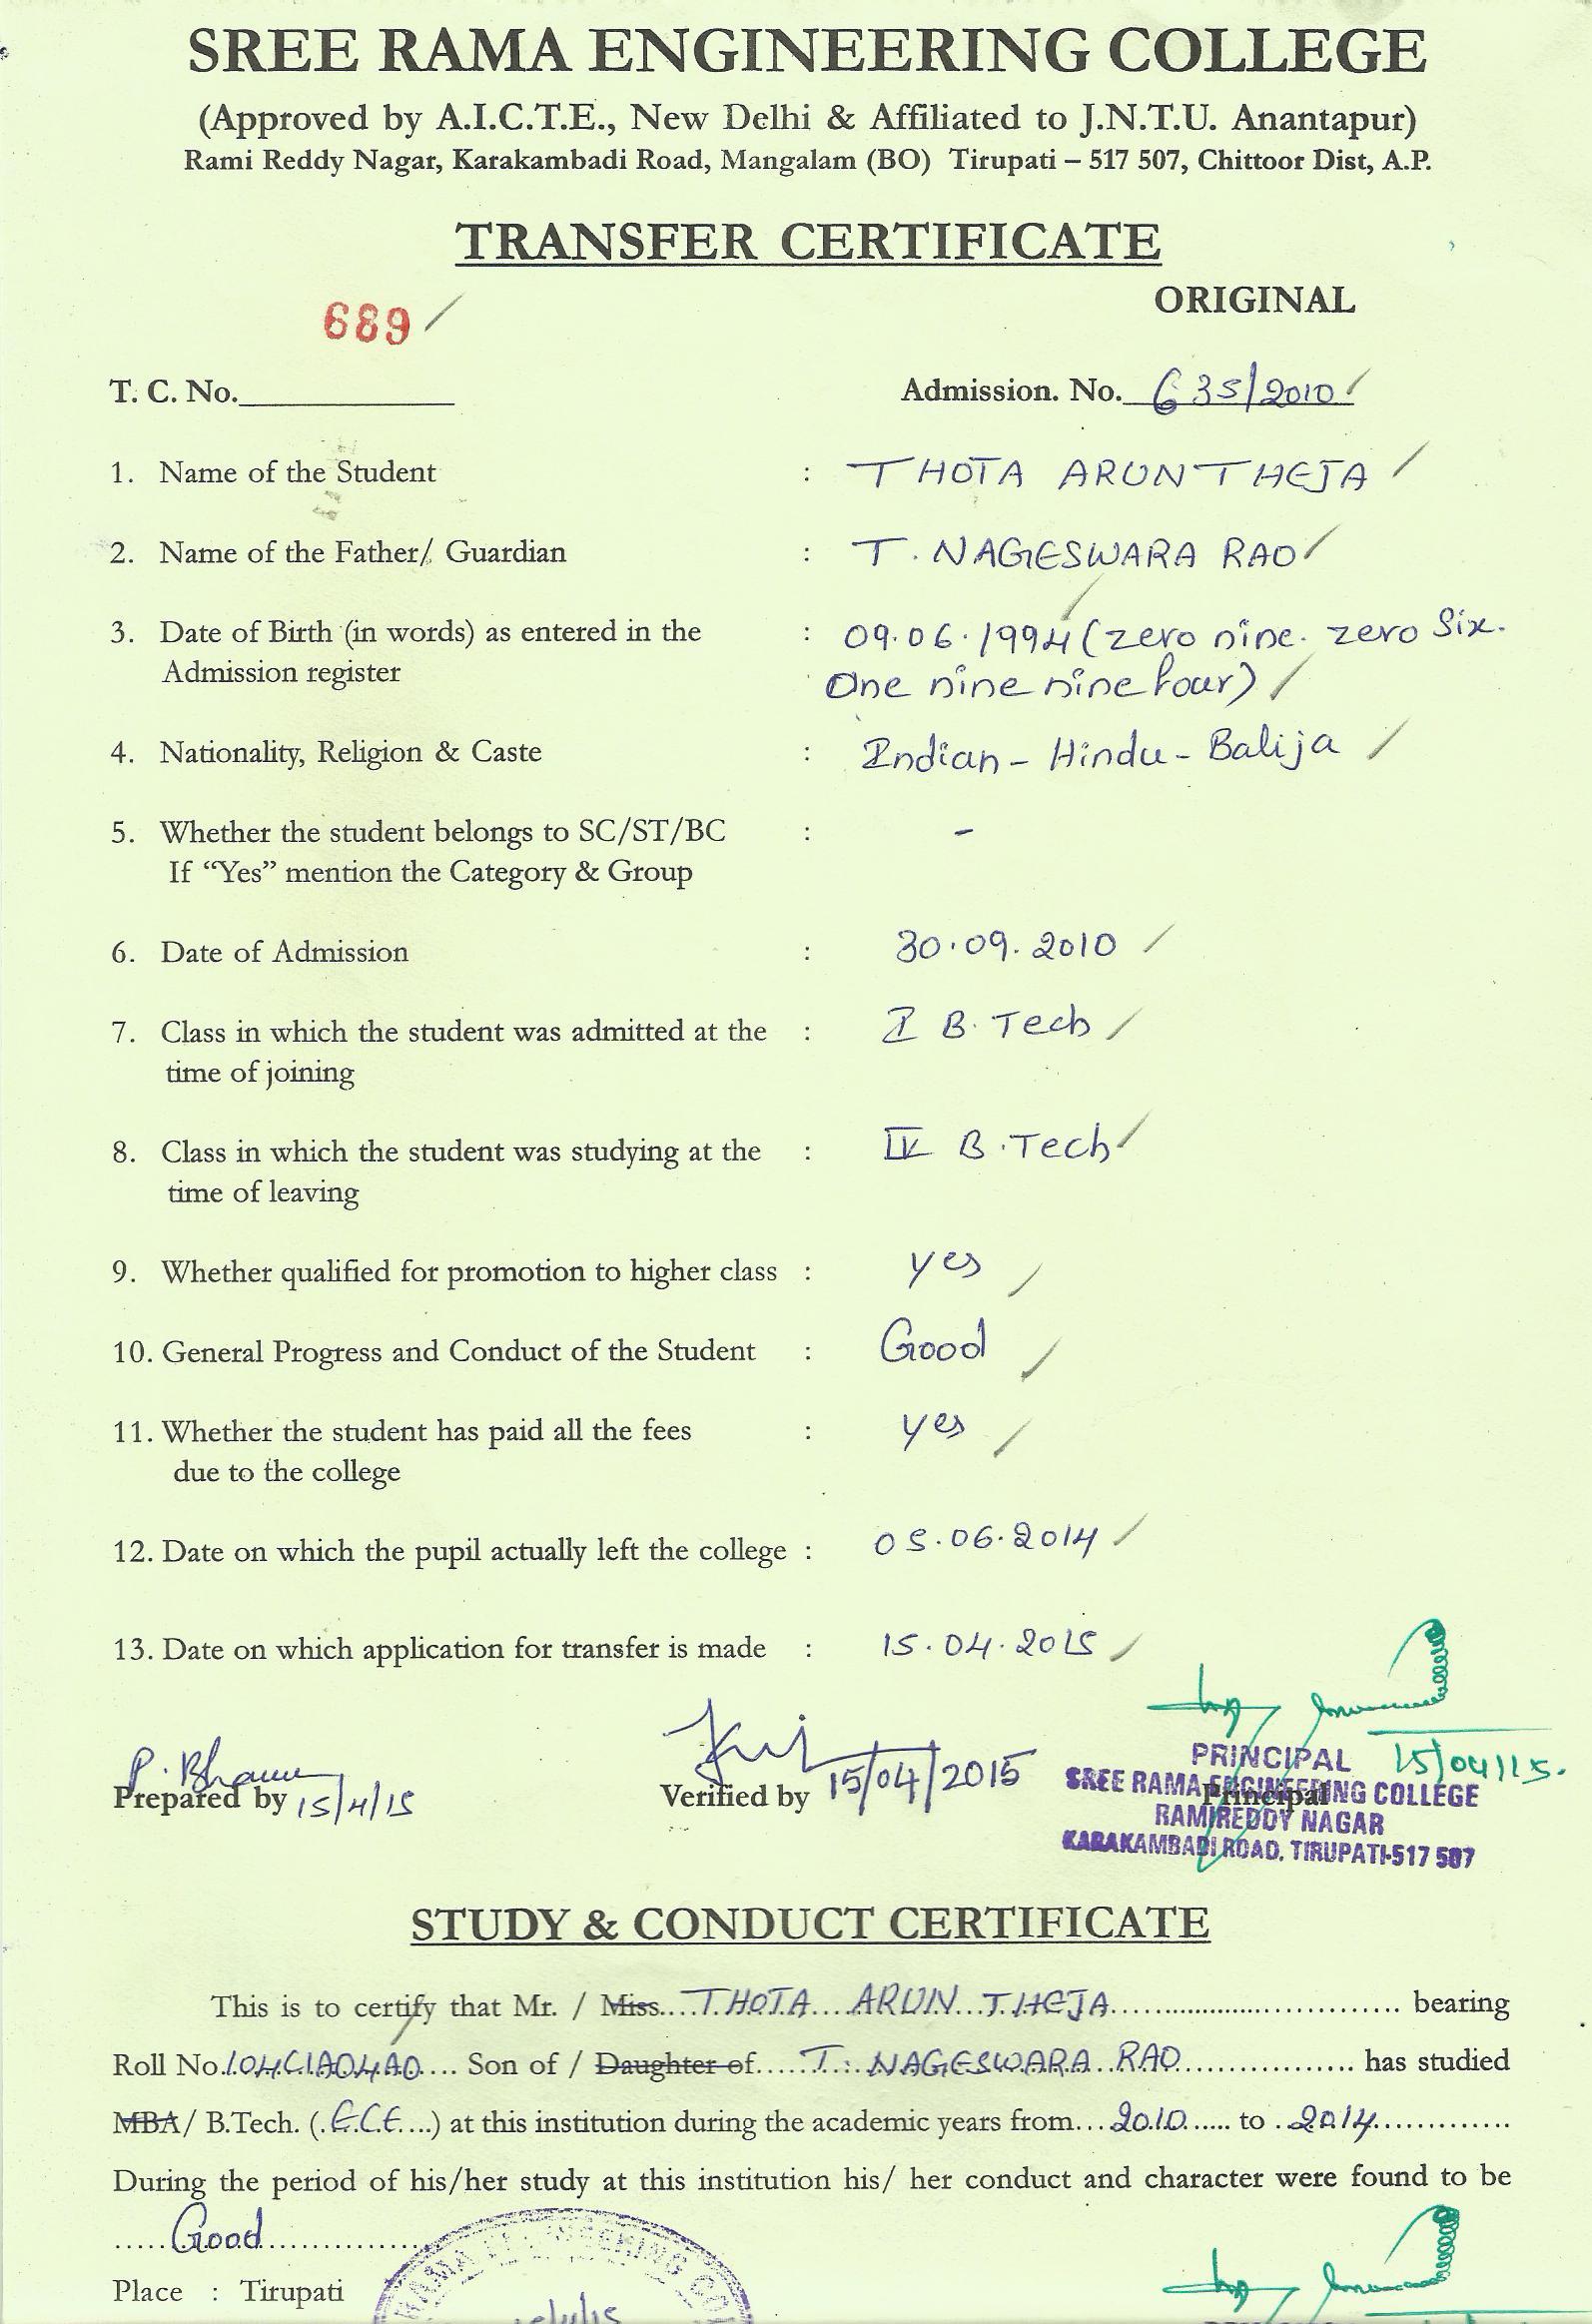 SREE RAMA ENGINEERING COLLEGE
(Approved by A.I.C.T.E., New Delhi & Affiliated to J.N.T.U. Anantapur)
Rami Reddy Nagar, Karakambadi Road, Mangalam (BO) Tirupati – 517 507, Chittoor Dist, A.P.
TRANSFER CERTIFICATE
ORIGINAL
689
T. C. No. Admission. No. 635/2010
1. Name of the Student : THOTA ARUN THEJA
2. Name of the Father/ Guardian : T. NAGESWARA RAO
3. Date of Birth (in words) as entered in the : 09.06.1994 (zero nine. zero Six.
Admission register One nine nine four)
4. Nationality, Religion & Caste : Indian - Hindu - Balija
5. Whether the student belongs to SC/ST/BC : -
If “Yes” mention the Category & Group
6. Date of Admission : 30.09.2010
7. Class in which the student was admitted at the : I B.Tech
time of joining
8. Class in which the student was studying at the : IV B.Tech
time of leaving
9. Whether qualified for promotion to higher class : yes
10. General Progress and Conduct of the Student : Good
11. Whether the student has paid all the fees : yes
due to the college
12. Date on which the pupil actually left the college : 05.06.2014
13. Date on which application for transfer is made : 15.04.2015
P. Bhanu
Prepared by 15/4/15 Verified by 15/04/2015 Principal 15/04/15.
PRINCIPAL
SREE RAMA ENGINEERING COLLEGE
RAMIREDDY NAGAR
KARAKAMBADI ROAD, TIRUPATI-517 507
STUDY & CONDUCT CERTIFICATE
This is to certify that Mr. / Miss....THOTA....ARUN...THEJA........................... bearing
Roll No.104C1A04A0.... Son of / Daughter of....T. NAGESWARA RAO................. has studied
MBA/ B.Tech. (.E.C.E....) at this institution during the academic years from...2010...... to ..2014.............
During the period of his/her study at this institution his/ her conduct and character were found to be
.....Good.....................
Place : Tirupati
RAMA ENGINEERING CO